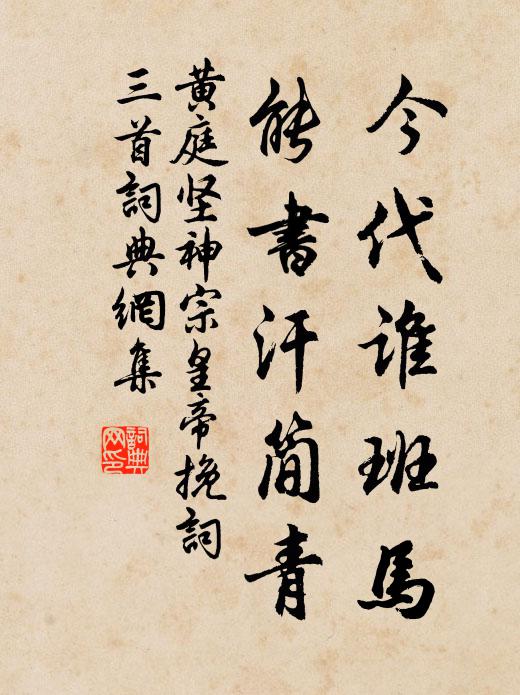 今代谁班馬
能書汗简青
黄庭坚神宗皇帝挽詞
三首詞典網集
詞典
网印